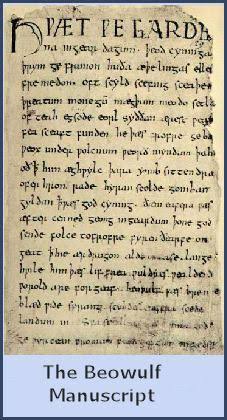 HǷÆT ǷE GARDE
na ingear dagum. þeod cyninga
þrym ge frunon huða æþelingas elle
fremedon. oft scyld scefing sceaþe
þreatum monegū mægþum meodo setla
of teah egsode eorl syððan ærest ƿear
fea sceaft funden he þæs frofre geba
ƿeox under ƿolcnum ƿeorð myndum þah
oð ꝥ him æghƿylc þara ymb sittendra
ofer hron rade hyran scolde gomban
gyldan ꝥ ƿæs god cyning. ðæm eafera ƿæs
æfter cenned geong ingeardum þone god
sende folce tofrofre fyren ðearfe on
geat ꝥ hie ær drugon aldor ase. lange
hƿile him þæs lif frea ƿuldres ƿealdend
ƿorold are for geaf. beoƿulf ƿæs breme
blæd ƿide sprang scyldes eafera scede
landum in.
ge ƿyrcean fromum
The Beowulf
Manuscript